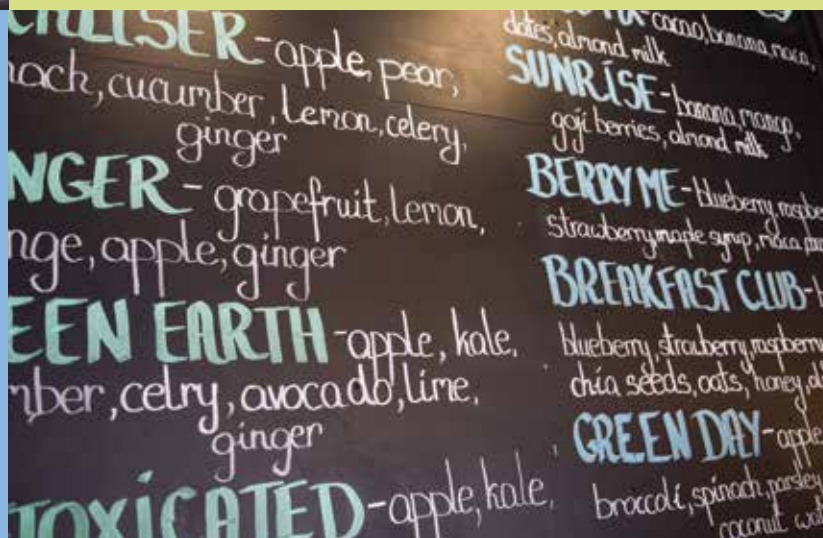 apple, pear,
cucumber, Lemon, celery,
ginger
grapefruit, lemon,
apple, ginger
EARTH - apple, kale,
celry, avocado, lime,
ginger
apple, kale,
cacao, banana, maca,
dates, almond milk
SUNRISE - banana, mango,
goji berries, almond milk
BERRY ME - blueberry,
strawberry, maple syrup, maca,
BREAKFAST CLUB -
blueberry, strawberry, raspberry
chia seeds, oats, honey,
GREEN DAY - apple
broccoli, spinach, parsley
coconut